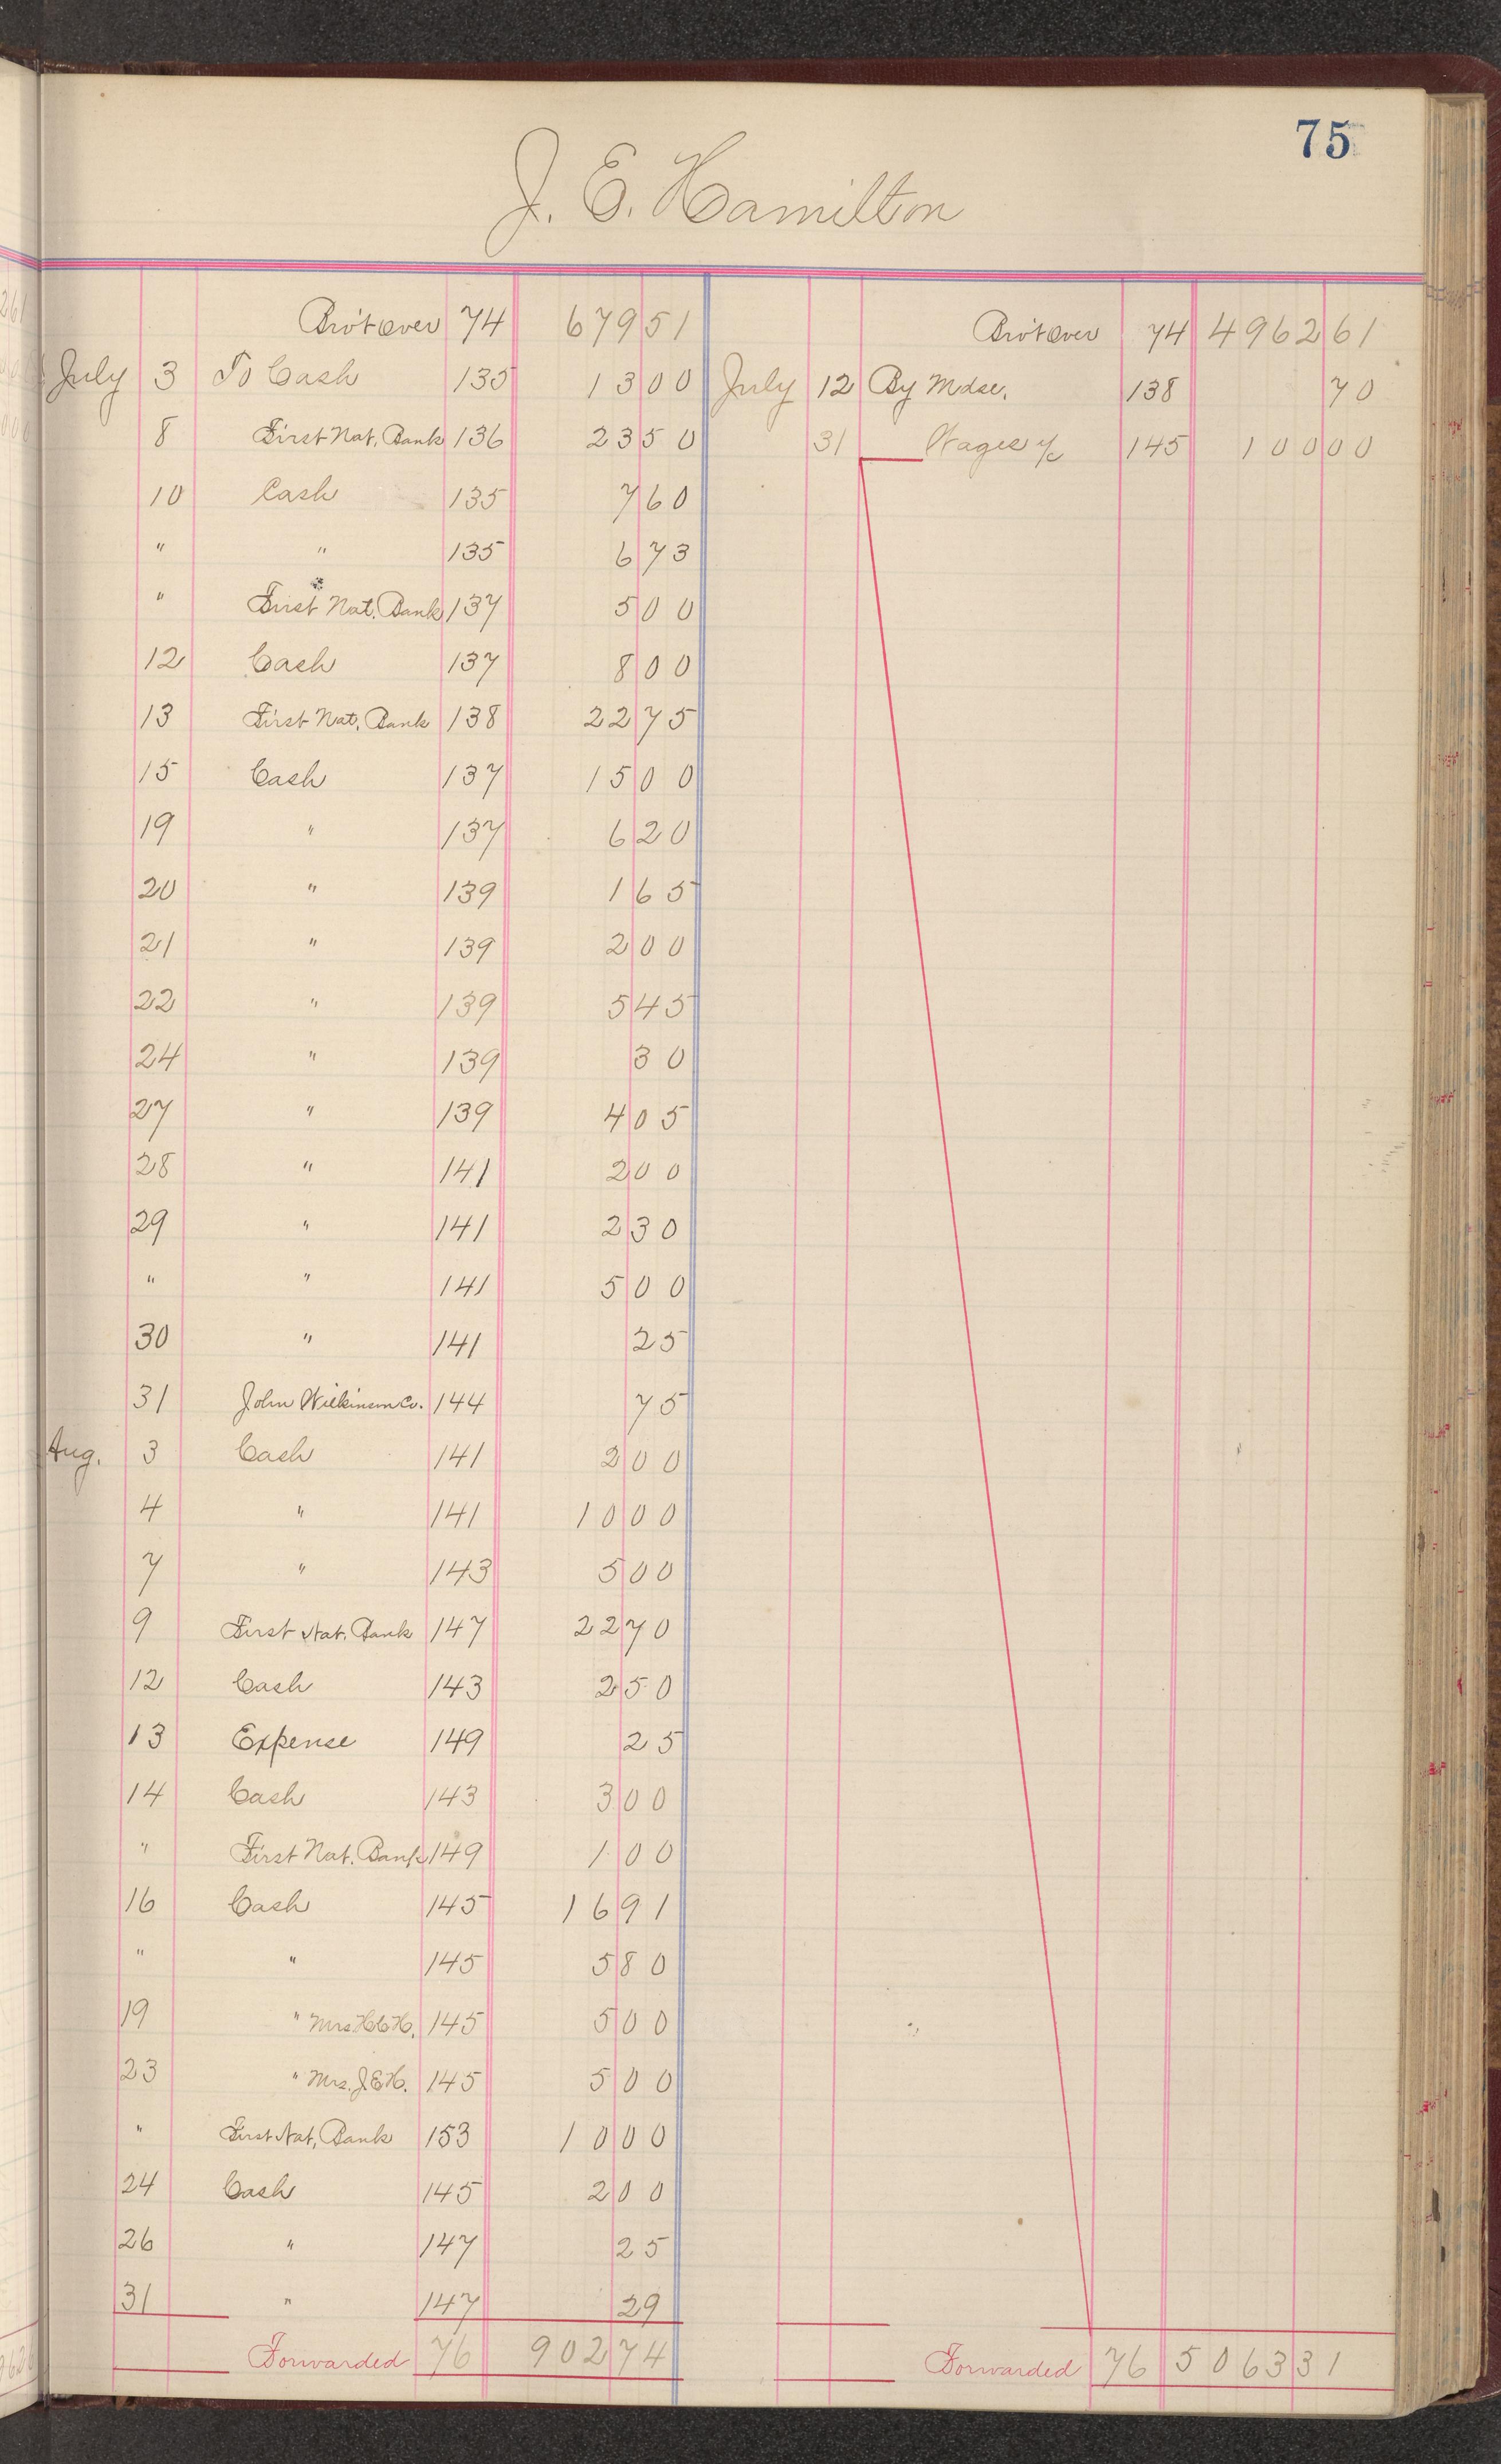 75
J. E. Hamilton
Bro't Over 74 679 51
July 3 To Cash 135 13 00
8 First Nat. Bank 136 23 50
10 Cash 135 7 60
" " 135 6 73
" First Nat. Bank 137 5 00
12 Cash 137 8 00
13 First Nat. Bank 138 22 75
15 Cash 137 15 00
19 " 137 6 20
20 " 139 1 65
21 " 139 2 00
22 " 139 5 45
24 " 139 30
27 " 139 4 05
28 " 141 2 00
29 " 141 2 30
" " 141 5 00
30 " 141 25
31 John Wilkinson Co. 144 75
Aug. 3 Cash 141 2 00
4 " 141 10 00
7 " 143 5 00
9 First Nat. Bank 147 22 70
12 Cash 143 2 50
13 Expense 149 25
14 Cash 143 3 00
" First Nat. Bank 149 1 00
16 Cash 145 16 91
" " 145 5 80
19 " Mrs. H.C.H. 145 5 00
23 " Mrs. J.E.H. 145 5 00
" First Nat. Bank 153 10 00
24 Cash 145 2 00
26 " 147 25
31 " 147 29
Forwarded 76 902 74
Bro't Over 74 4962 61
July 12 By Mdse. 138 70
31 Wages a/c 145 100 00
Forwarded 76 5063 31